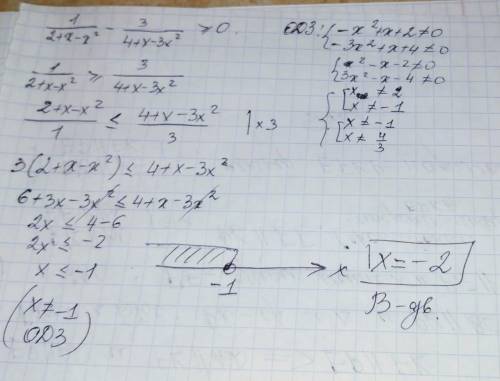 1/(2+x-x²) - 3/(4+x-3x²) ≥ 0.
ОДЗ: { -x²+x+2≠0
-3x²+x+4≠0
{ x²-x-2≠0
3x²-x-4≠0
{ [ x≠2
x≠-1
[ x≠-1
x≠4/3
1/(2+x-x²) ≥ 3/(4+x-3x²)
(2+x-x²)/1 ≤ (4+x-3x²)/3 | ×3
3(2+x-x²) ≤ 4+x-3x²
6+3x-3x² ≤ 4+x-3x²
2x ≤ 4-6
2x ≤ -2
x ≤ -1
-1
x
x=-2
(x≠-1
ОДЗ)